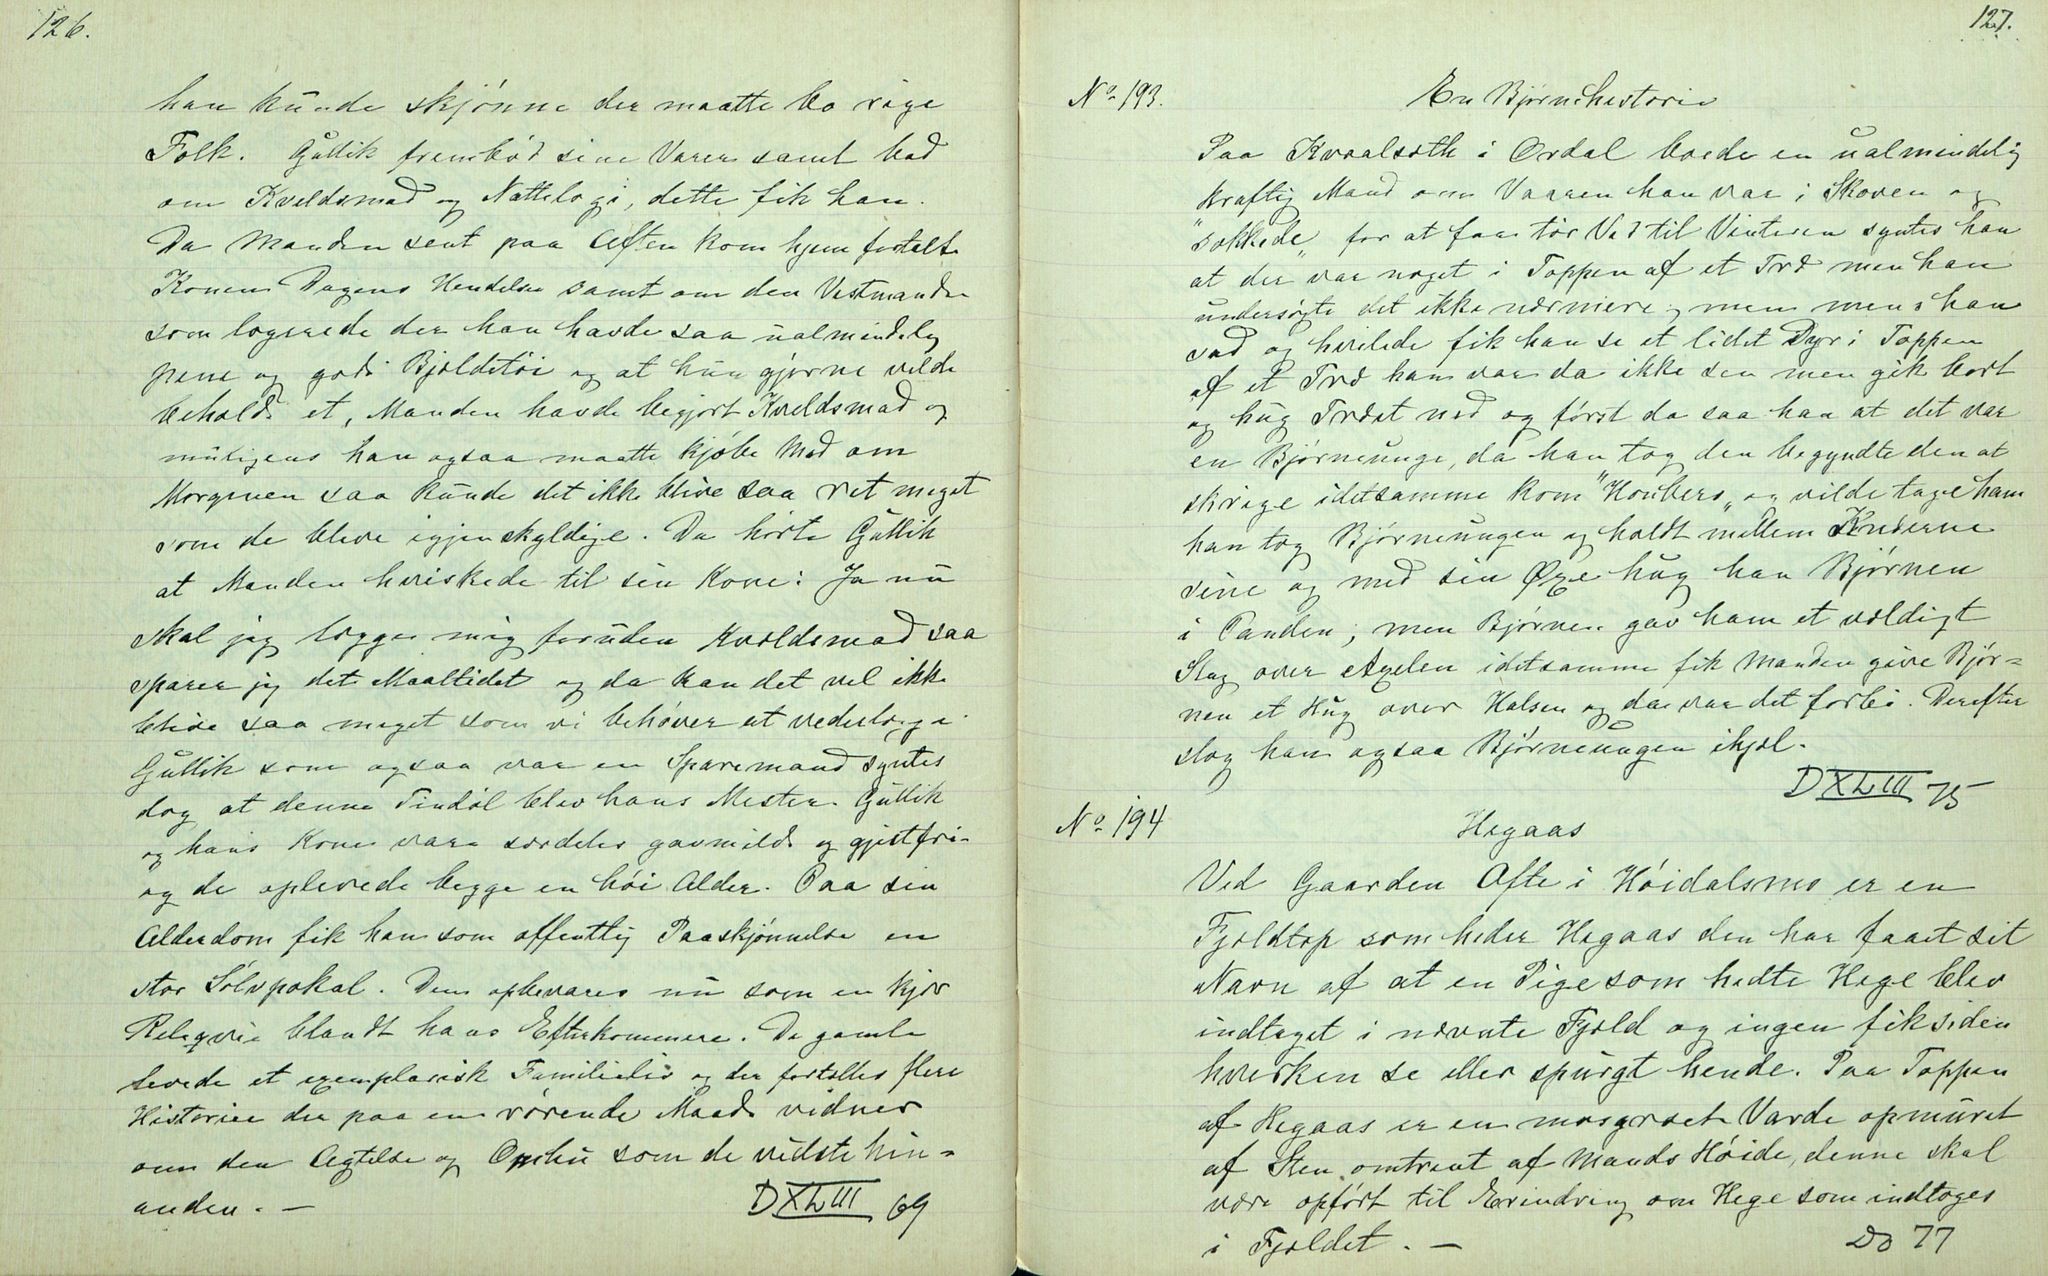 126.
han kunde skjønne der maatte bo rige
Folk. Gullik frembød sine Varer samt bad
om Kveldsmad og Nattelogi, dette fik han.
Da Manden sent paa Aften kom hjem fortalte
Konen Dagens Hendelser samt om den Vestmanden
som logerede der han havde saa ualmindelig
pene og gode Bjeldetøi og at hun gjerne vilde
beholde et, Manden havde begjært Kveldsmad og
muligens han ogsaa maatte kjøbe Mad om
Morgenen saa kunde det ikke blive saa ret meget
som de bleve igjen skyldige. Da hørte Gullik
at Manden hviskede til sin Kone: Ja nu
skal jeg lægge mig foruden Kvældsmad saa
sparer jeg det Maaltidet og da kan det vel ikke
blive saa meget som vi behøver at vederlægge.
Gullik som ogsaa var en Sparemand syntes
dog at denne Tindøl blev hans Mester. Gullik
og hans Kone vare særdeles gavmilde og gjestfri-
og de oplevede begge en høi Alder. Paa sin
Alderdom fik han som offentlig Paaskjønnelse en
stor Sølvpokal. Den opbevares nu som en kjær
Reliqvie blandt hans Efterkommere. De gamle
levede et exemplarisk Familieliv og der fortelles flere
Historier der paa en rørende Maade vidner
om den Agtelse og Omhu som de vidste hin-
anden. —
D XLIII 69
127.
No 193. En Bjørnehistorie
Paa Kvaalseth i Ordal boede en ualmindelig
kraftig Mand om Vaaren han var i Skoven og
"søkkede" for at faa tør Ved til Vinteren syntes han
at der var noget i Toppen af et Træ men han
undersøgte det ikke nærmere, men mens han
sad og hvilede fik han se et lidet Dyr i Toppen
af et Træ han var da ikke sen men gik bort
og hug Træet ned og først da saa han at det var
en Bjørneunge, da han tog den begyndte den at
skrige idetsamme kom "Honbers" og vilde tage ham
han tog Bjørneungen og holdt mellem Knæerne
sine og med sin Øxe hug han Bjørnen
i Panden, men Bjørnen gav ham et vældigt
Slag over Axelen idetsamme fik Manden give Bjør-
nen et Hug over Halsen og da var det forbi. Derefter
slog han ogsaa Bjørneungen ihjel.
D XLIII 75
No 194 Hegaas
Ved Gaarden Ofte i Høidalsmo er en
Fjeldtop som heder Hegaas den har faaet sit
Navn af at en Pige som hedte Hege blev
indtaget i nævnte Fjeld og ingen fik siden
hverken se eller spurgt hende. Paa Toppen
af Hegaas er en mosgroet Varde opmuret
af Sten omtrent af Mands Høide, denne skal
være opført til Erindring om Hege som indtoges
i Fjeldet. —
Do 77